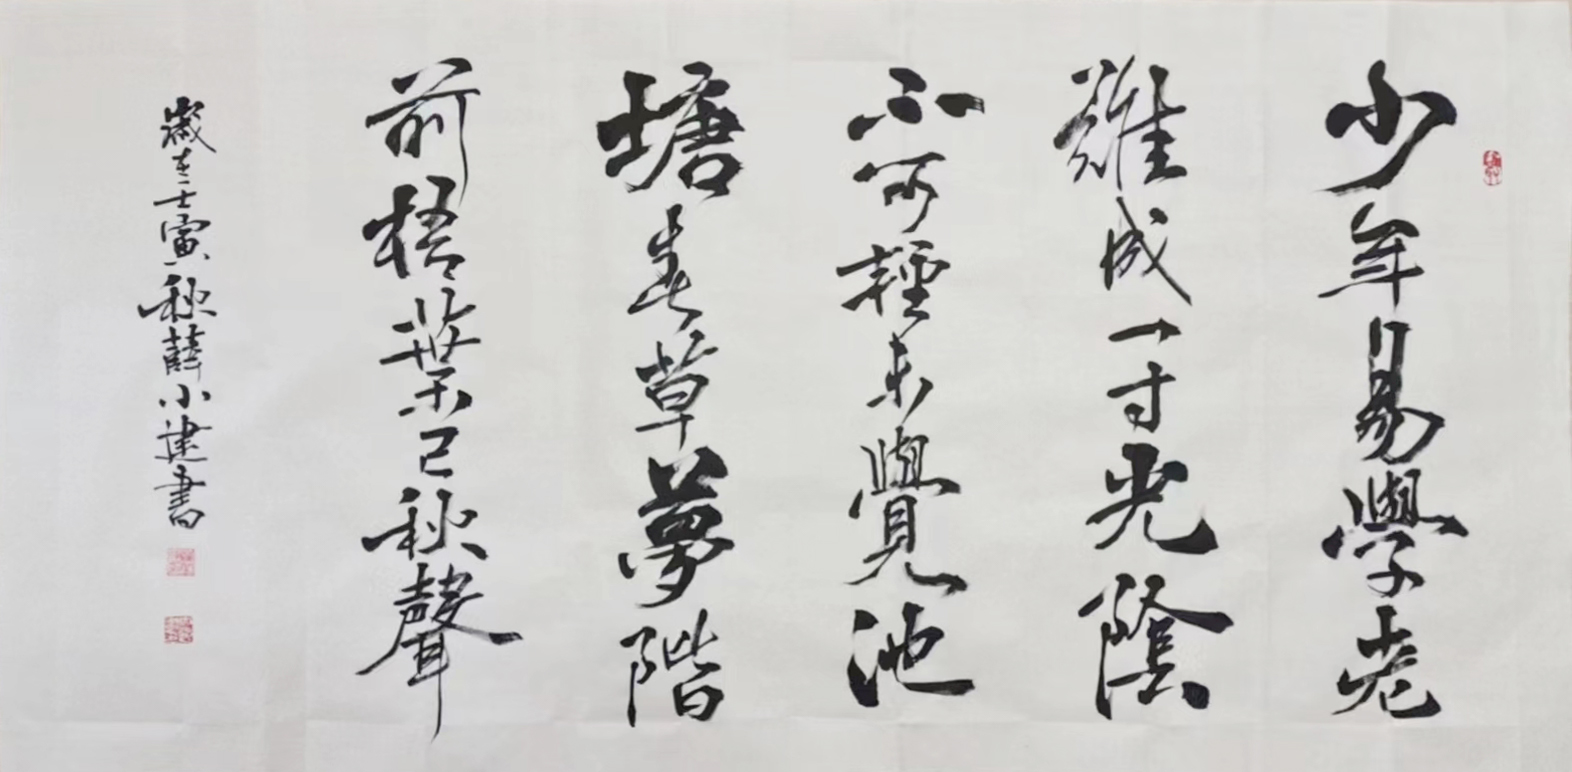 少年易學老
難成一寸光陰
不可輕未覺池
塘春草夢階
前梧葉已秋聲
歲在壬寅秋薛小建書